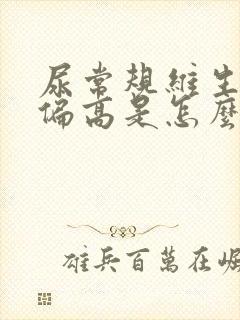 尿常规維生
偏高是怎麼
雄兵百萬在崛